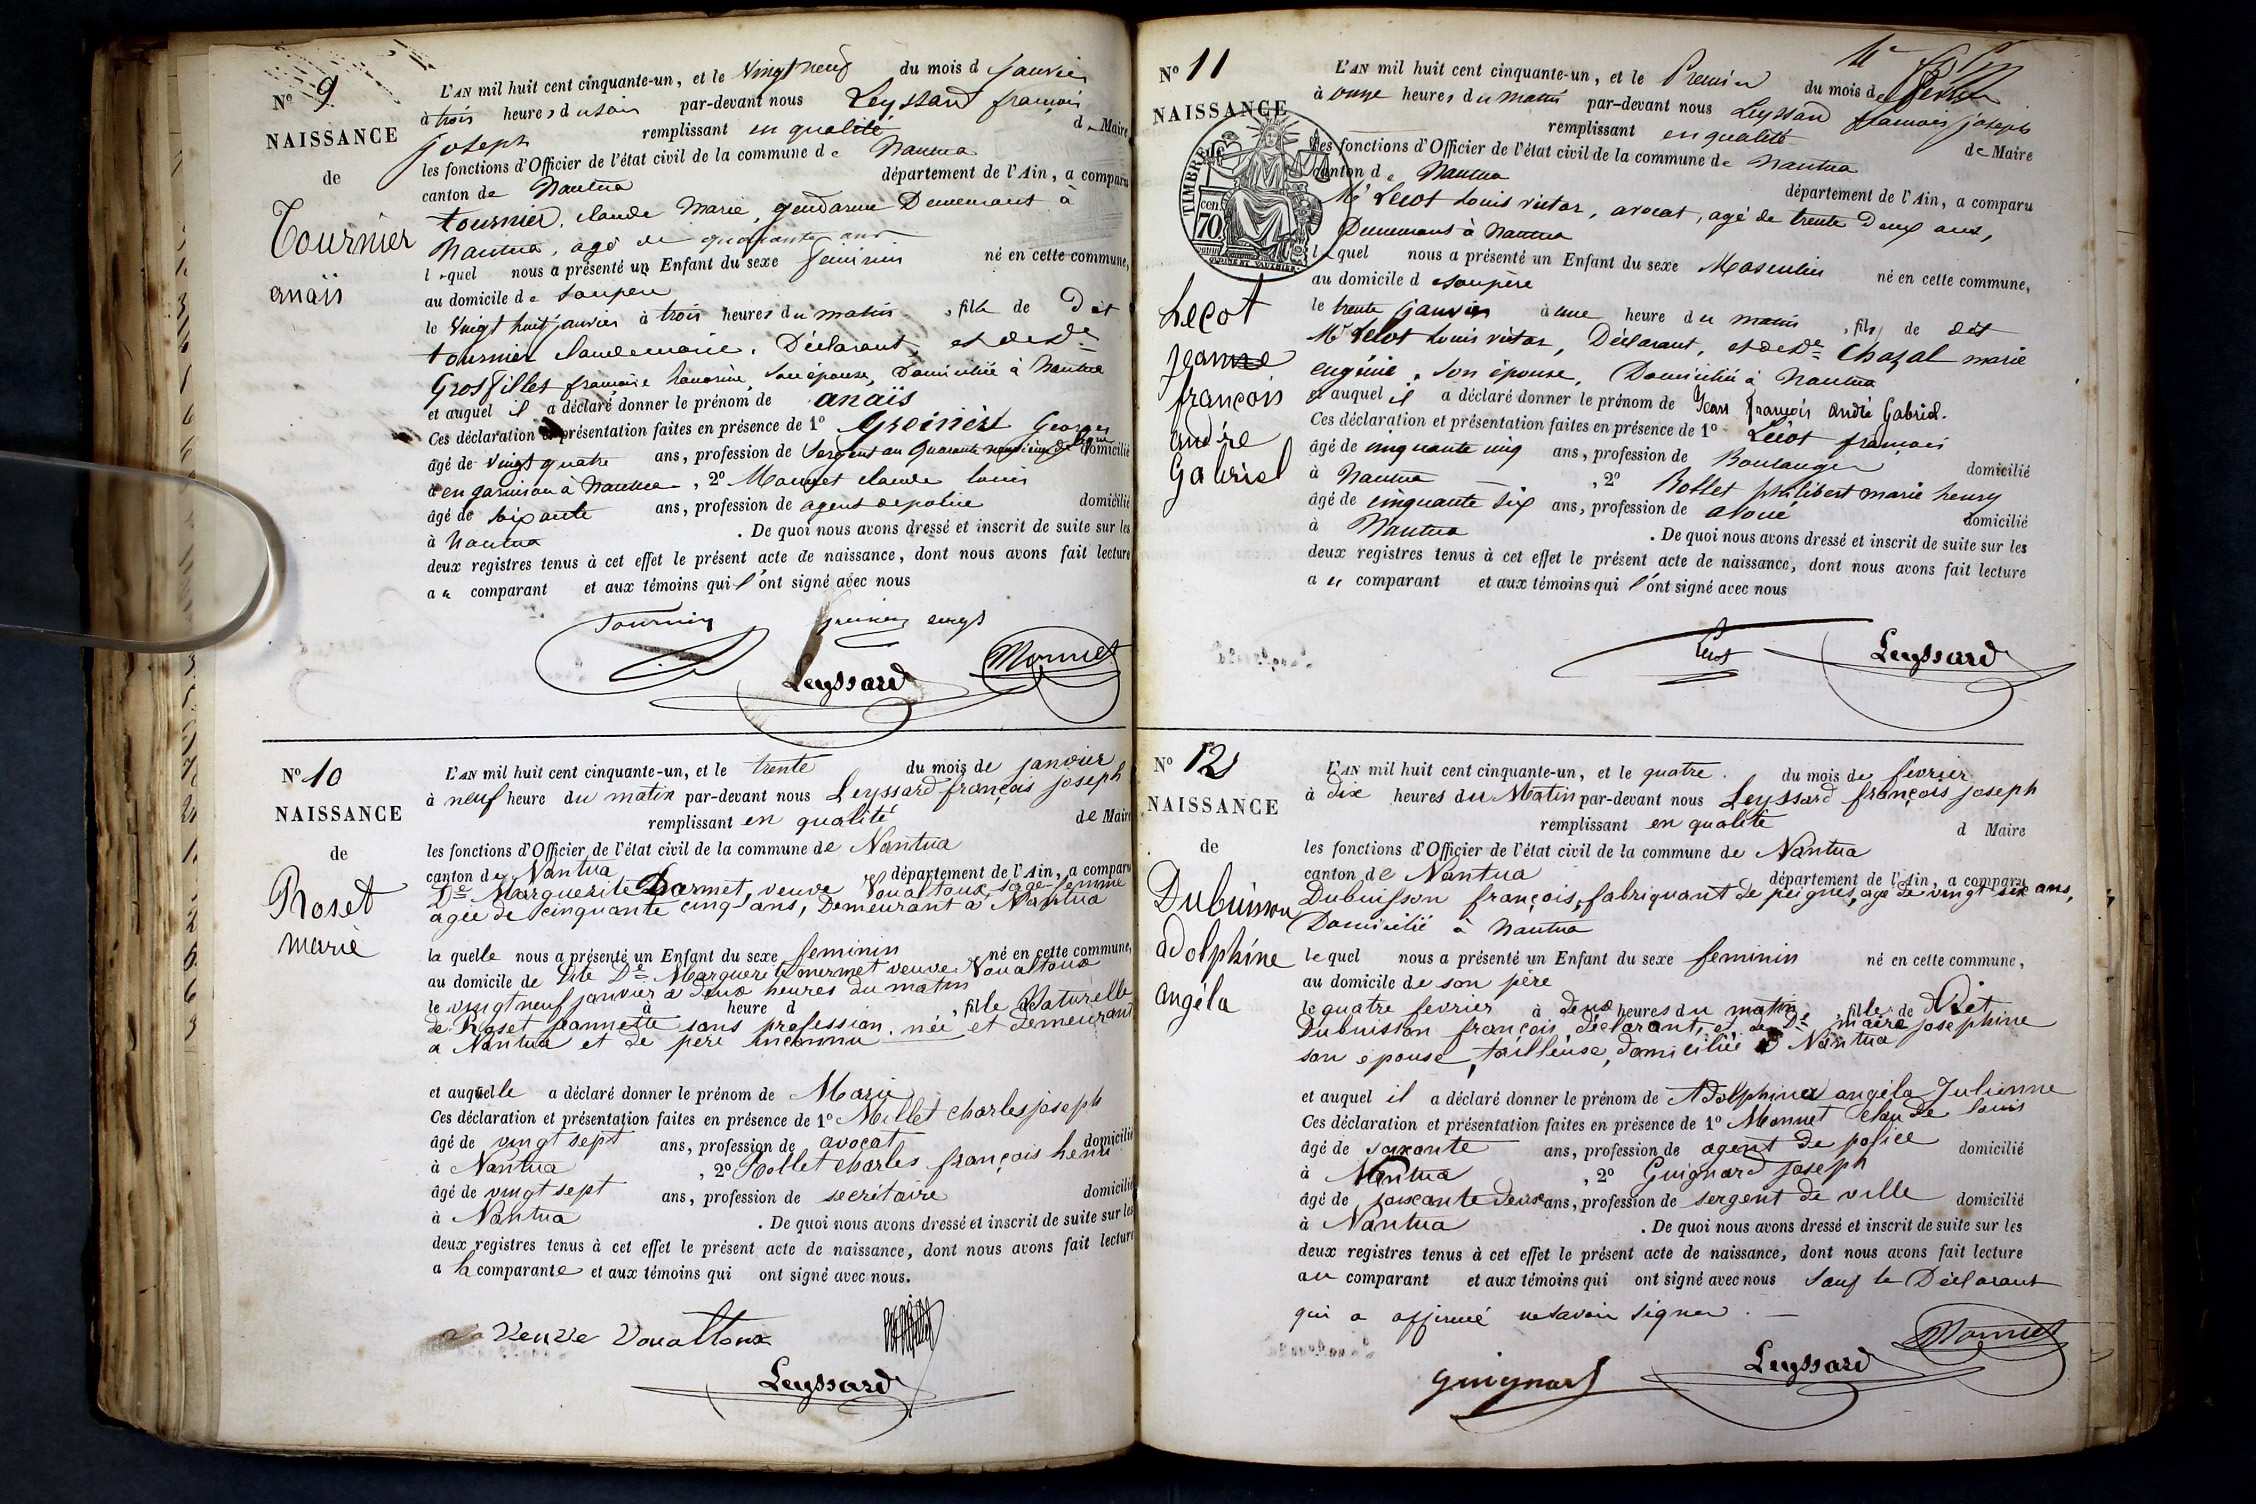 N° 9
NAISSANCE
de
Tournier
anaïs
L'AN mil huit cent cinquante-un, et le vingt neuf du mois d janvier
à trois heures du soir par-devant nous Leyssard françois
joseph remplissant en qualité de Maire
les fonctions d'Officier de l'état civil de la commune de Nantua
canton de Nantua département de l'Ain, a comparu
tournier, claude Marie, gendarme Demeurant à
Nantua, agé de quarante ans
lequel nous a présenté un Enfant du sexe feminin né en cette commune,
au domicile de son pere
le vingt huit janvier à trois heures du matin, fille de Dit
tournier claude marie, Déclarant, et de De
Grosfilley françoise honorine, son épouse, Domiciliée à Nantua
et auquel il a déclaré donner le prénom de anaïs
Ces déclaration et présentation faites en présence de 1° Greinier Georges
âgé de vingt quatre ans, profession de Sergent au Quarante neuvième de ligne domicilié
à en garnison à Nantua, 2° Monnet claude louis
âgé de soixante ans, profession de agent de police domicilié
à Nantua. De quoi nous avons dressé et inscrit de suite sur les
deux registres tenus à cet effet le présent acte de naissance, dont nous avons fait lecture
au comparant et aux témoins qui l'ont signé avec nous
Tournier Greinier
Leyssard Monnet
N° 10
NAISSANCE
de
Roset
marie
L'AN mil huit cent cinquante-un, et le trente du mois de janvier
à neuf heure du matin par-devant nous Leyssard françois joseph
remplissant en qualité de Maire
les fonctions d'Officier de l'état civil de la commune de Nantua
canton de Nantua département de l'Ain, a comparu
De Marguerite Dormet, veuve Voualtoux, sage-femme
agée de cinquante cinq ans, Demeurant à Nantua
la quelle nous a présenté un Enfant du sexe feminin né en cette commune,
au domicile de Dite De Marguerite mermet veuve Voualtoux
le vingt neuf janvier à deux heures du matin
à heure d, fille Naturelle
de Roset jeannette sans profession, née et demeurant
a Nantua et de père inconnu
et auquelle a déclaré donner le prénom de Marie
Ces déclaration et présentation faites en présence de 1° Millet charles joseph
âgé de vingt sept ans, profession de avocat domicilié
à Nantua, 2° Rollet charles françois henri
âgé de vingt sept ans, profession de secrétaire domicilié
à Nantua. De quoi nous avons dressé et inscrit de suite sur les
deux registres tenus à cet effet le présent acte de naissance, dont nous avons fait lecture
a la comparante et aux témoins qui ont signé avec nous.
Veuve Voualtoux
Leyssard
N° 11
NAISSANCE
TIMBRE
cen
70
Lecot
jeanne
françois
andre
Gabriel
L'AN mil huit cent cinquante-un, et le Premier du mois de
à onze heures du matin par-devant nous Leyssard francois joseph
remplissant en qualité de Maire
les fonctions d'Officier de l'état civil de la commune de Nantua
canton de Nantua département de l'Ain, a comparu
Mr Lecot Louis victor, avocat, agé de trente deux ans,
Demeurant à Nantua
lequel nous a présenté un Enfant du sexe Masculin né en cette commune,
au domicile de son père
le trente janvier à une heure du matin, fils de dit
Mr Lecot Louis victor, Déclarant, et de De Chazal marie
eugénie, son épouse, Domiciliée à Nantua
et auquel il a déclaré donner le prénom de Jean François André Gabriel.
Ces déclaration et présentation faites en présence de 1° Lecot françois
âgé de cinquante cinq ans, profession de Boulanger domicilié
à Nantua, 2° Rollet philibert marie henry
âgé de cinquante six ans, profession de avoué domicilié
à Nantua. De quoi nous avons dressé et inscrit de suite sur les
deux registres tenus à cet effet le présent acte de naissance, dont nous avons fait lecture
au comparant et aux témoins qui l'ont signé avec nous
Lecot Leyssard
N° 12
NAISSANCE
de
Dubuisson
adolphine
angéla
L'AN mil huit cent cinquante-un, et le quatre. du mois de fevrier
à dix heures du Matin par-devant nous Leyssard françois joseph
remplissant en qualité d Maire
les fonctions d'Officier de l'état civil de la commune de Nantua
canton de Nantua département de l'Ain, a comparu
Dubuisson françois, fabriquant de peignes, age de vingt six ans,
Domicilié à Nantua
lequel nous a présenté un Enfant du sexe feminin né en cette commune,
au domicile de son père
le quatre fevrier à deux heures du matin, fille de Dit
Dubuisson françois, déclarant, et de De maire josephine
son epouse, tailleuse, domiciliée à Nantua
et auquel il a déclaré donner le prénom de Adolphine angéla Julienne
Ces déclaration et présentation faites en présence de 1° Monnet Claude louis
âgé de soixante ans, profession de agent de police domicilié
à Nantua, 2° Guignard joseph
âgé de soixante deux ans, profession de sergent de ville domicilié
à Nantua. De quoi nous avons dressé et inscrit de suite sur les
deux registres tenus à cet effet le présent acte de naissance, dont nous avons fait lecture
au comparant et aux témoins qui ont signé avec nous sauf le Déclarant
qui a affirmé ne savoir signer. —
Guignard Leyssard Monnet